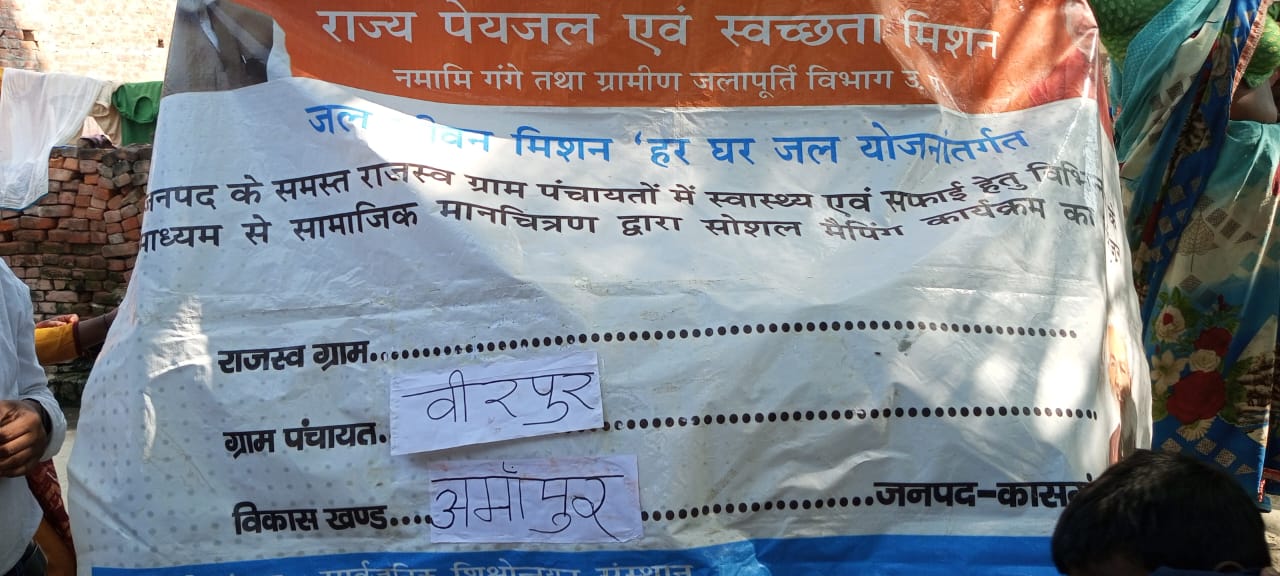 राज्य पेयजल एवं स्वच्छता मिशन
नमामि गंगे तथा ग्रामीण जलापूर्ति विभाग
जल मिशन 'हर घर जल योजनांतर्गत
के समस्त राजस्व ग्राम पंचायतों में स्वास्थ्य एवं सफाई हेतु
से सामाजिक मानचित्रण द्वारा सोशल मैपिंग कार्यक्रम का
राजस्व ग्राम
वीरपुर
ग्राम पंचायत
विकास खण्ड.... अमाँपुर ....जनपद-